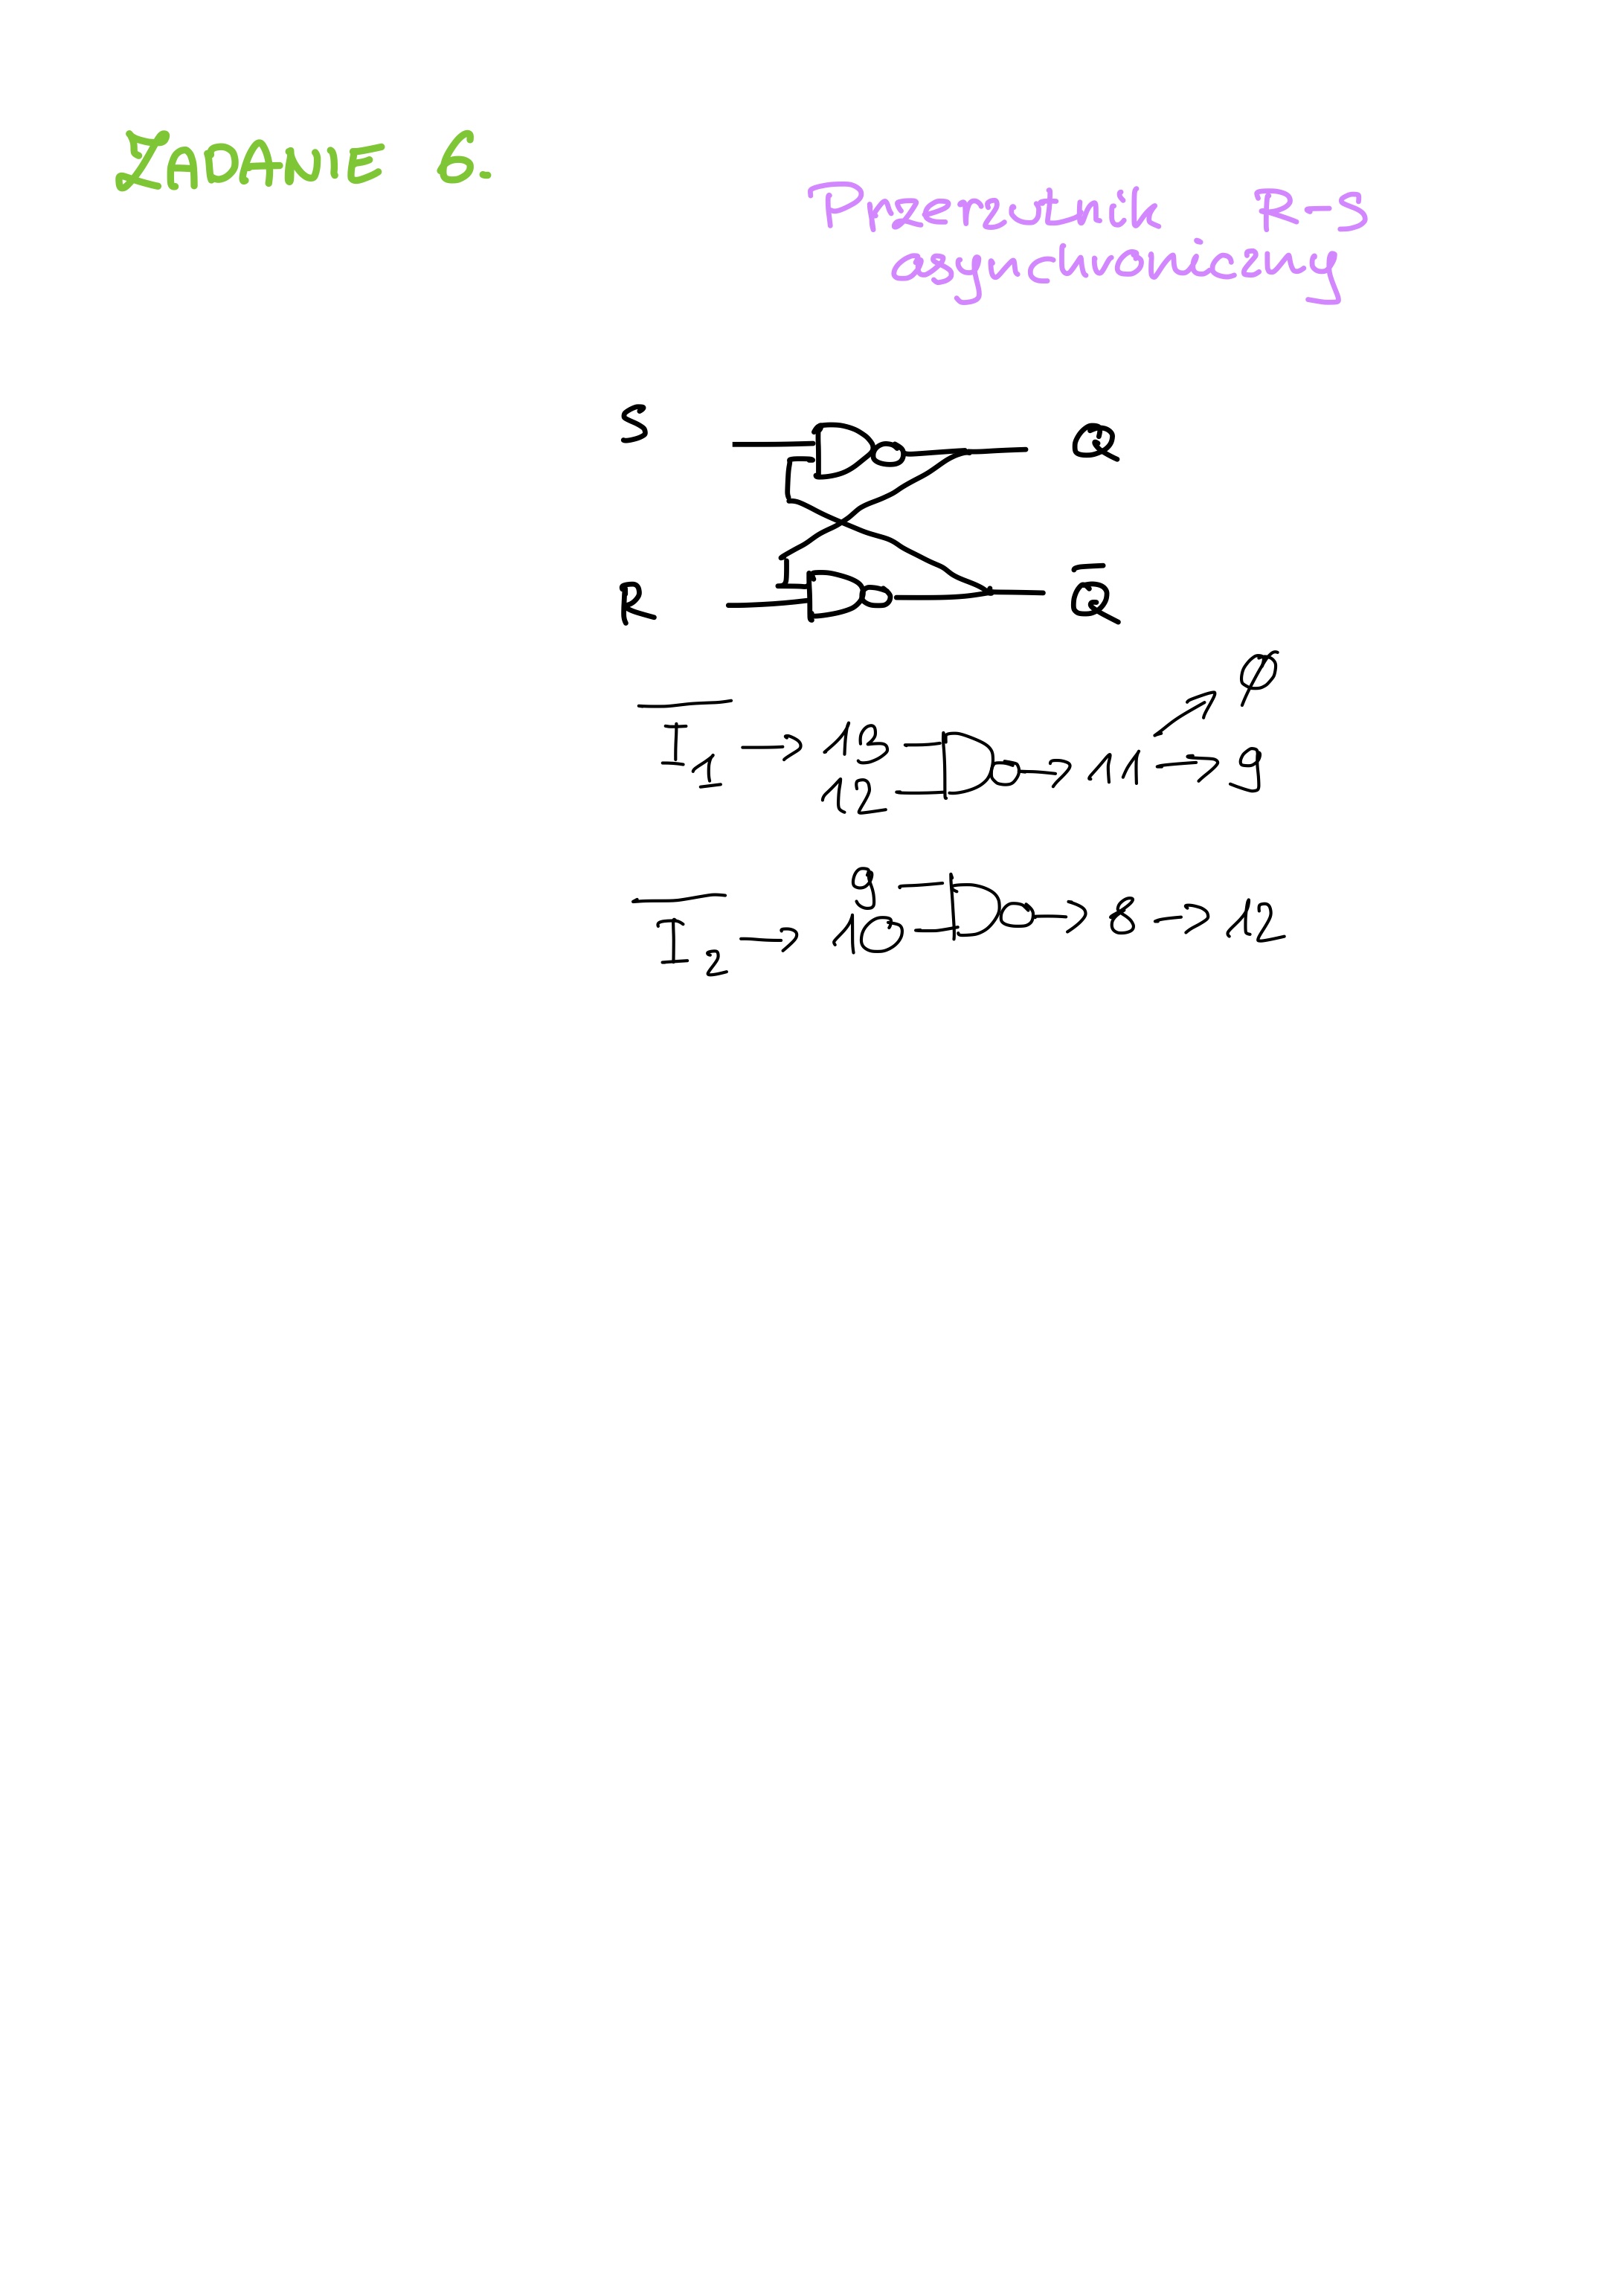 ZADANIE 6.
Przerzutnik R-S
asynchroniczny
S Q
R Q̅
I̅₁ → 13 → 11 → 9
12
ϕ
9
I̅₂ → 10 → 8 → 12